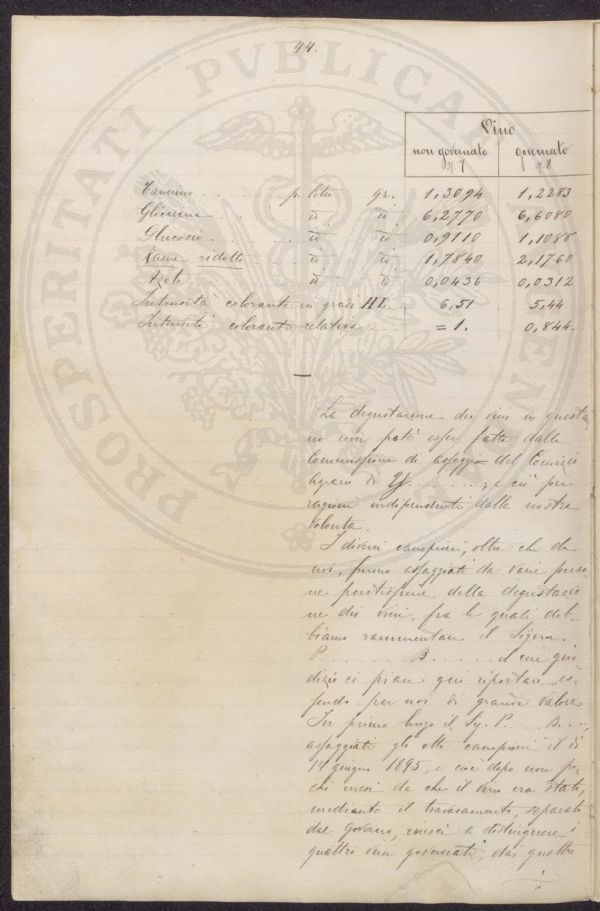 44.
PROSPERITATI PVBLICAE
Vino
non governato governato
N. 7 N. 8
Tannino . . . p. litro gr. 1,3094 1,2283
Glicerina . . . id id 6,2770 6,6080
Glucosio . . . id id 0,9110 1,1088
Zucc. ridotto . . id id 1,7840 2,1760
Azoto . . . id id 0,0436 0,0312
Intensità colorante in gradi HI . . 6,51 5,44
Intensità colorante relativa . . . = 1. 0,844.
La degustazione dei vini in questio
ne non potè esser fatta dalla
Commissione di assaggio del Comizio
Agrario di Y........; e ciò per
ragioni indipendenti dalla nostra
volontà.
I diversi campioni, oltre che da
noi, furono assaggiati da varie perso
ne peritissime della degustazio
ne dei vini, fra le quali dob-
biamo rammentare il Signor
P........ B...... il cui giu
dizio ci piace qui riportare es-
sendo per noi di grande valore
In primo luogo il Sig. P.... B....,
assaggiati gli otto campioni il dì
14 giugno 1895, e cioè dopo non po-
chi mesi da che il vino era stato,
mediante il travasamento, separato
dal governo, riuscì a distinguere i
quattro vini governati, dai quattro